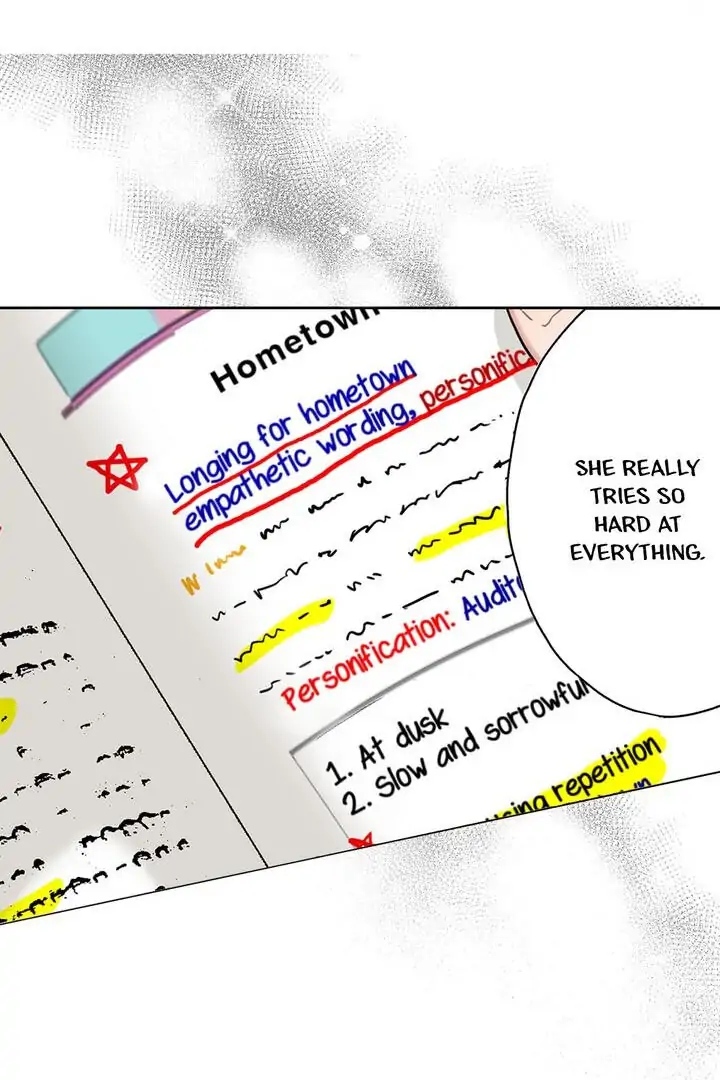 Hometown
Longing for hometown
empathetic wording, personific
SHE REALLY
TRIES SO
HARD AT
EVERYTHING.
Personification: Audito
1. At dusk
2. Slow and sorrowful
using repetition